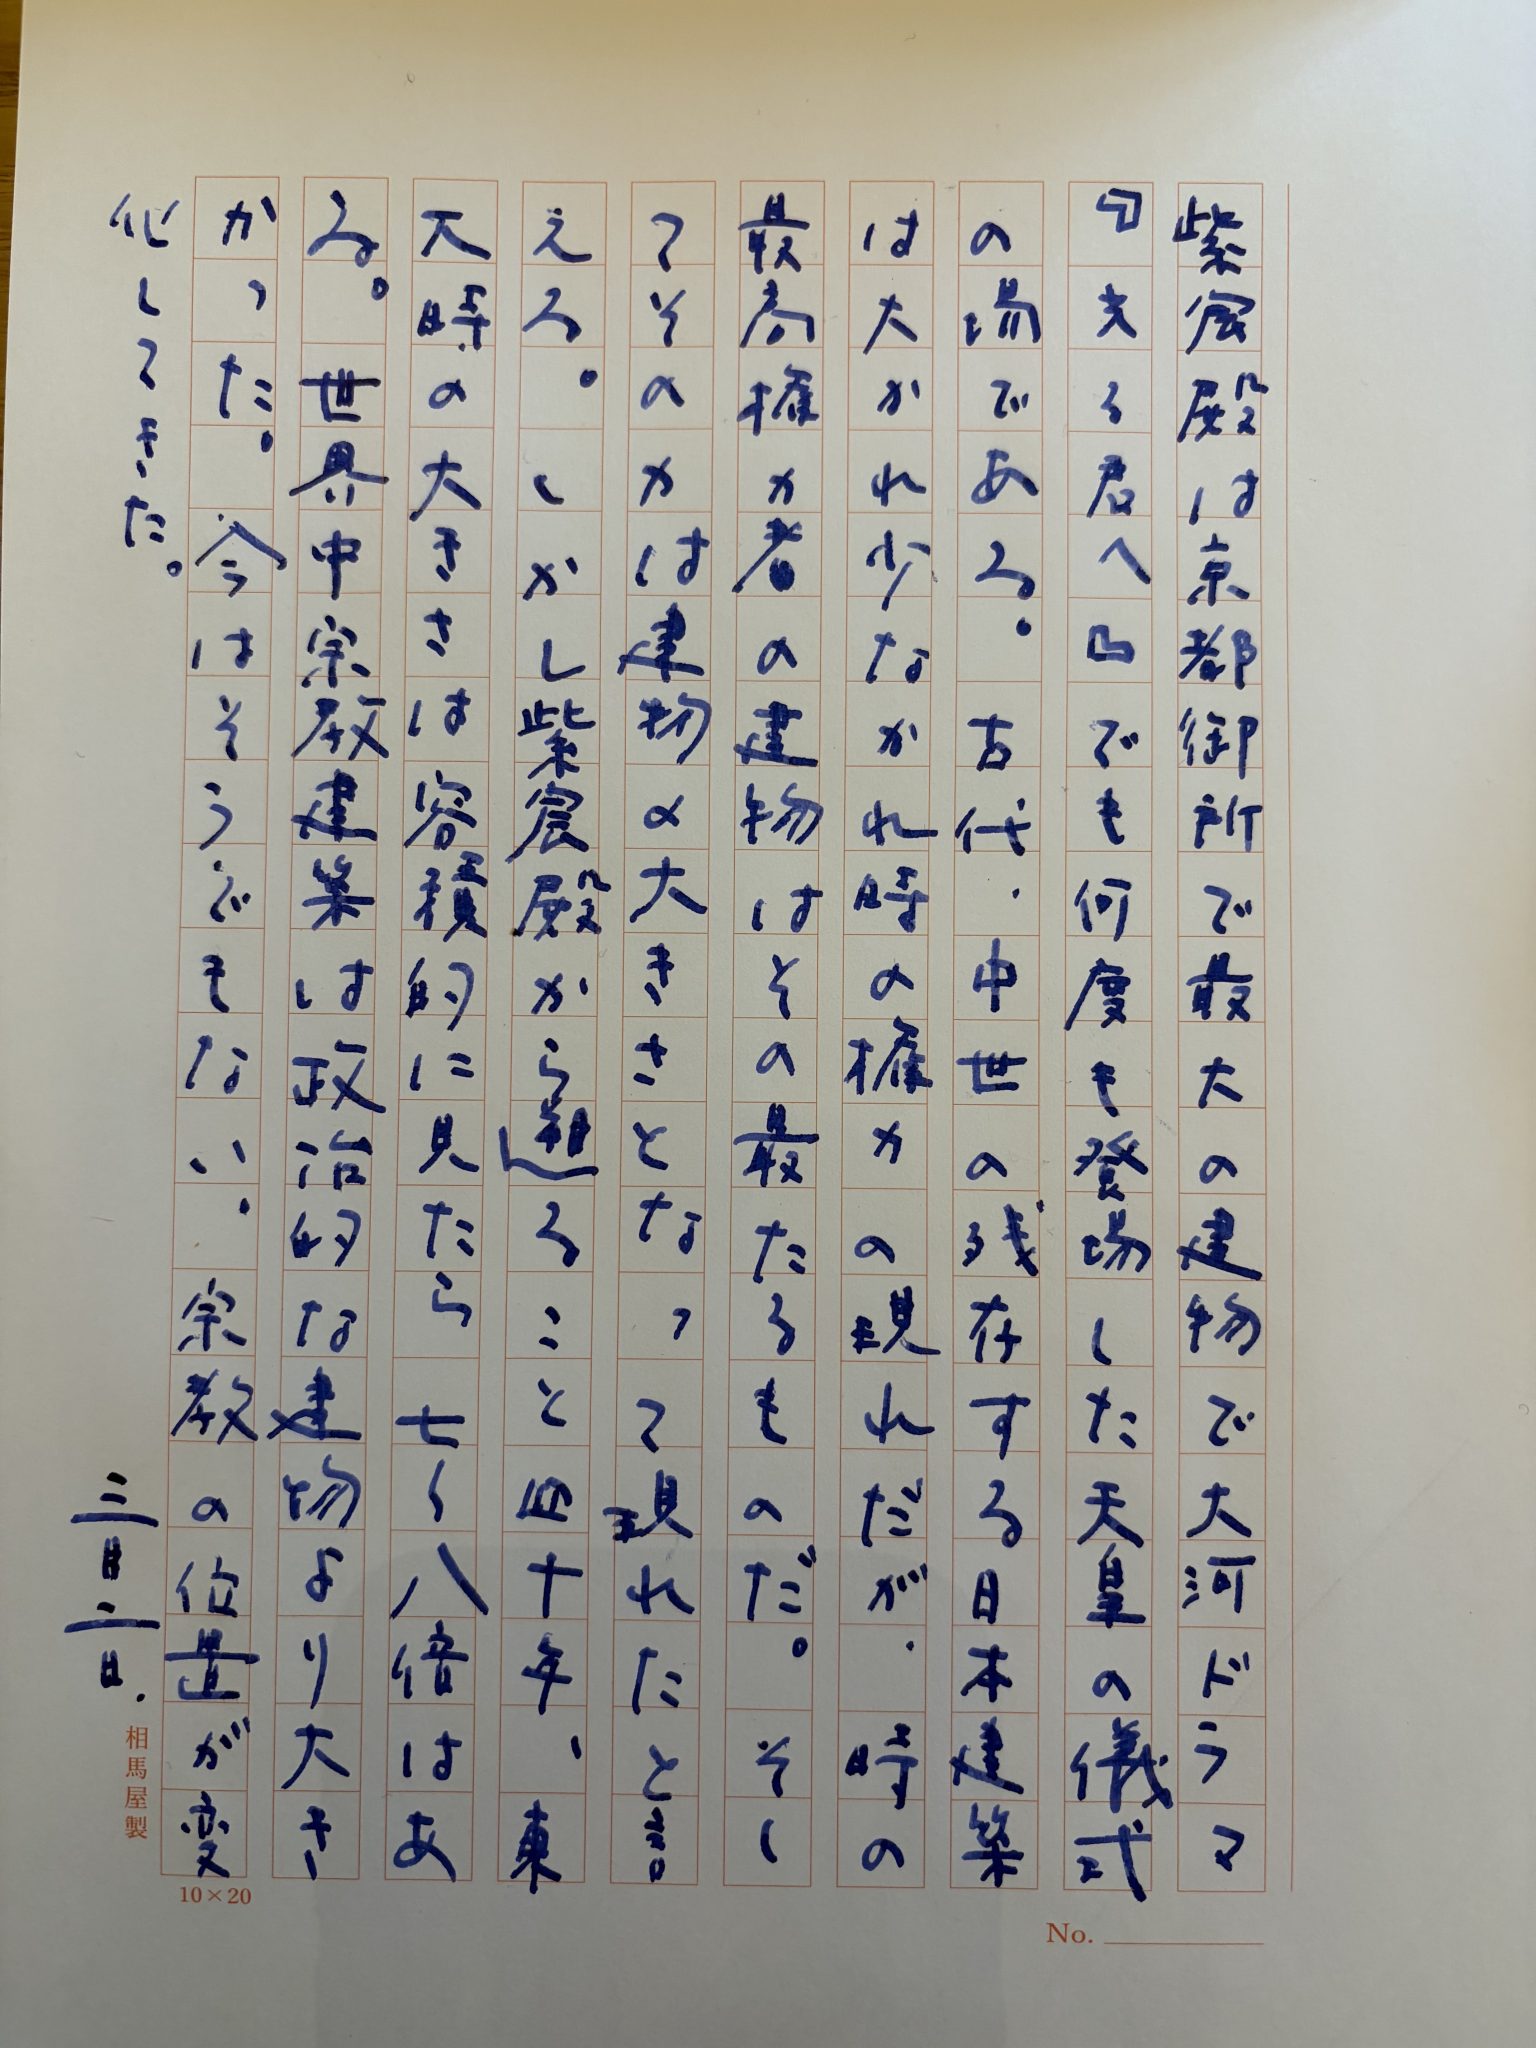 紫宸殿は京都御所で最大の建物で大河ドラマ
『光る君へ』でも何度も登場した天皇の儀式
の場である。古代、中世の残存する日本建築
は大かれ少なかれ時の権力の現れだが、時の
最高権力者の建物はその最たるものだ。そし
てその力は建物の大きさとなって現れたと言
える。しかし紫宸殿から遡ること四十年、東
大時の大きさは容積的に見たら七〜八倍はあ
る。世界中宗教建築は政治的な建物より大き
かった。今はそうでもない。宗教の位置が変
化してきた。
三月二日.
相馬屋製
10×20
No.